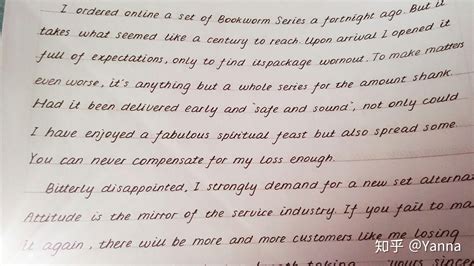 I ordered online a set of Bookworm Series a fortnight ago. But it
takes what seemed like a century to reach. Upon arrival I opened it
full of expectations, only to find itspackage wornout. To make matters
even worse, it's anything but a whole series for the amount shank.
Had it been delivered early and "safe and sound", not only could
I have enjoyed a fabulous spiritual feast but also spread some.
You can never compensate for my loss enough.
Bitterly disappointed, I strongly demand for a new set
Attitude is the mirror of the service industry. If you fail to
it again, there will be more and more customers like me losing
taking yours
知乎 @Yanna